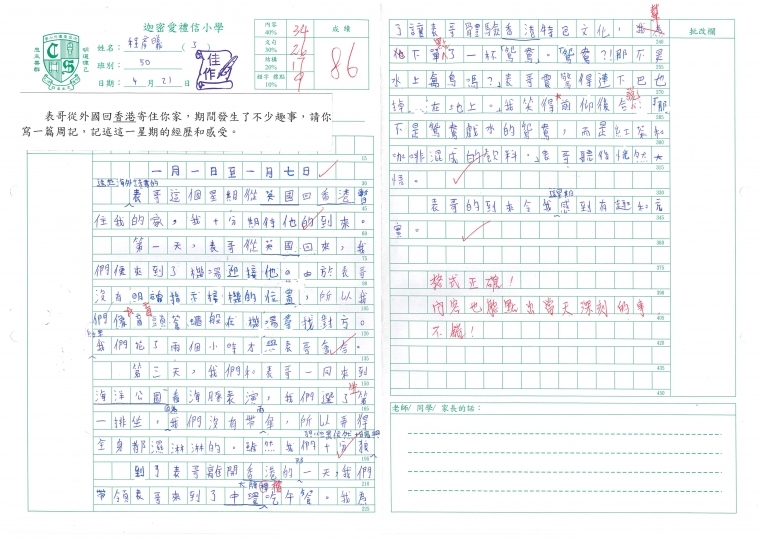 迦密愛禮信小學
姓名：
(3)
班別：5D
日期：4月21
佳作
內容 40% 34
文句 30% 26
結構 20% 17
錯字 標點 10% 9
成績
86
表哥從外國回香港寄住你家，期間發生了不少趣事，請你
寫一篇周記，記述這一星期的經歷和感受。
一月一日至一月七日
表哥這個星期從英國回香港暫
住我的家，我十分期待他的到來。
第一天，表哥從英國回來，我
們便來到了機場迎接他。由於表哥
沒有明確指示接機的位置，所以我
們像盲頭烏蠅般在機場尋找對方。
我們花了兩個小時才與表哥會合。
第三天，我們和表哥一同來到
海洋公園看海豚表演，我們選了第
一排坐，我們沒有帶傘，所以弄得
全身都濕淋淋的。雖然我們十分狼
到了表哥離開香港的一天，我們
帶領表哥來到了中環吃午餐。我為
了讓表哥體驗香港特色文化，我為
他下單了一杯「鴛鴦」。「鴛鴦？！那不是
水上萬鳥嗎？」表哥震驚得連下巴也
掉在地上。我笑得前仰後合：「那
不是鴛鴦戲水的鴛鴦，而是紅茶和
咖啡混成的飲料。」表哥聽後恍然大
悟。
表哥的到來令我感到有趣和充
實。
批改欄
格式正確！
內容也能點出當天深刻的事，
不錯！
老師/ 同學/ 家長的話：